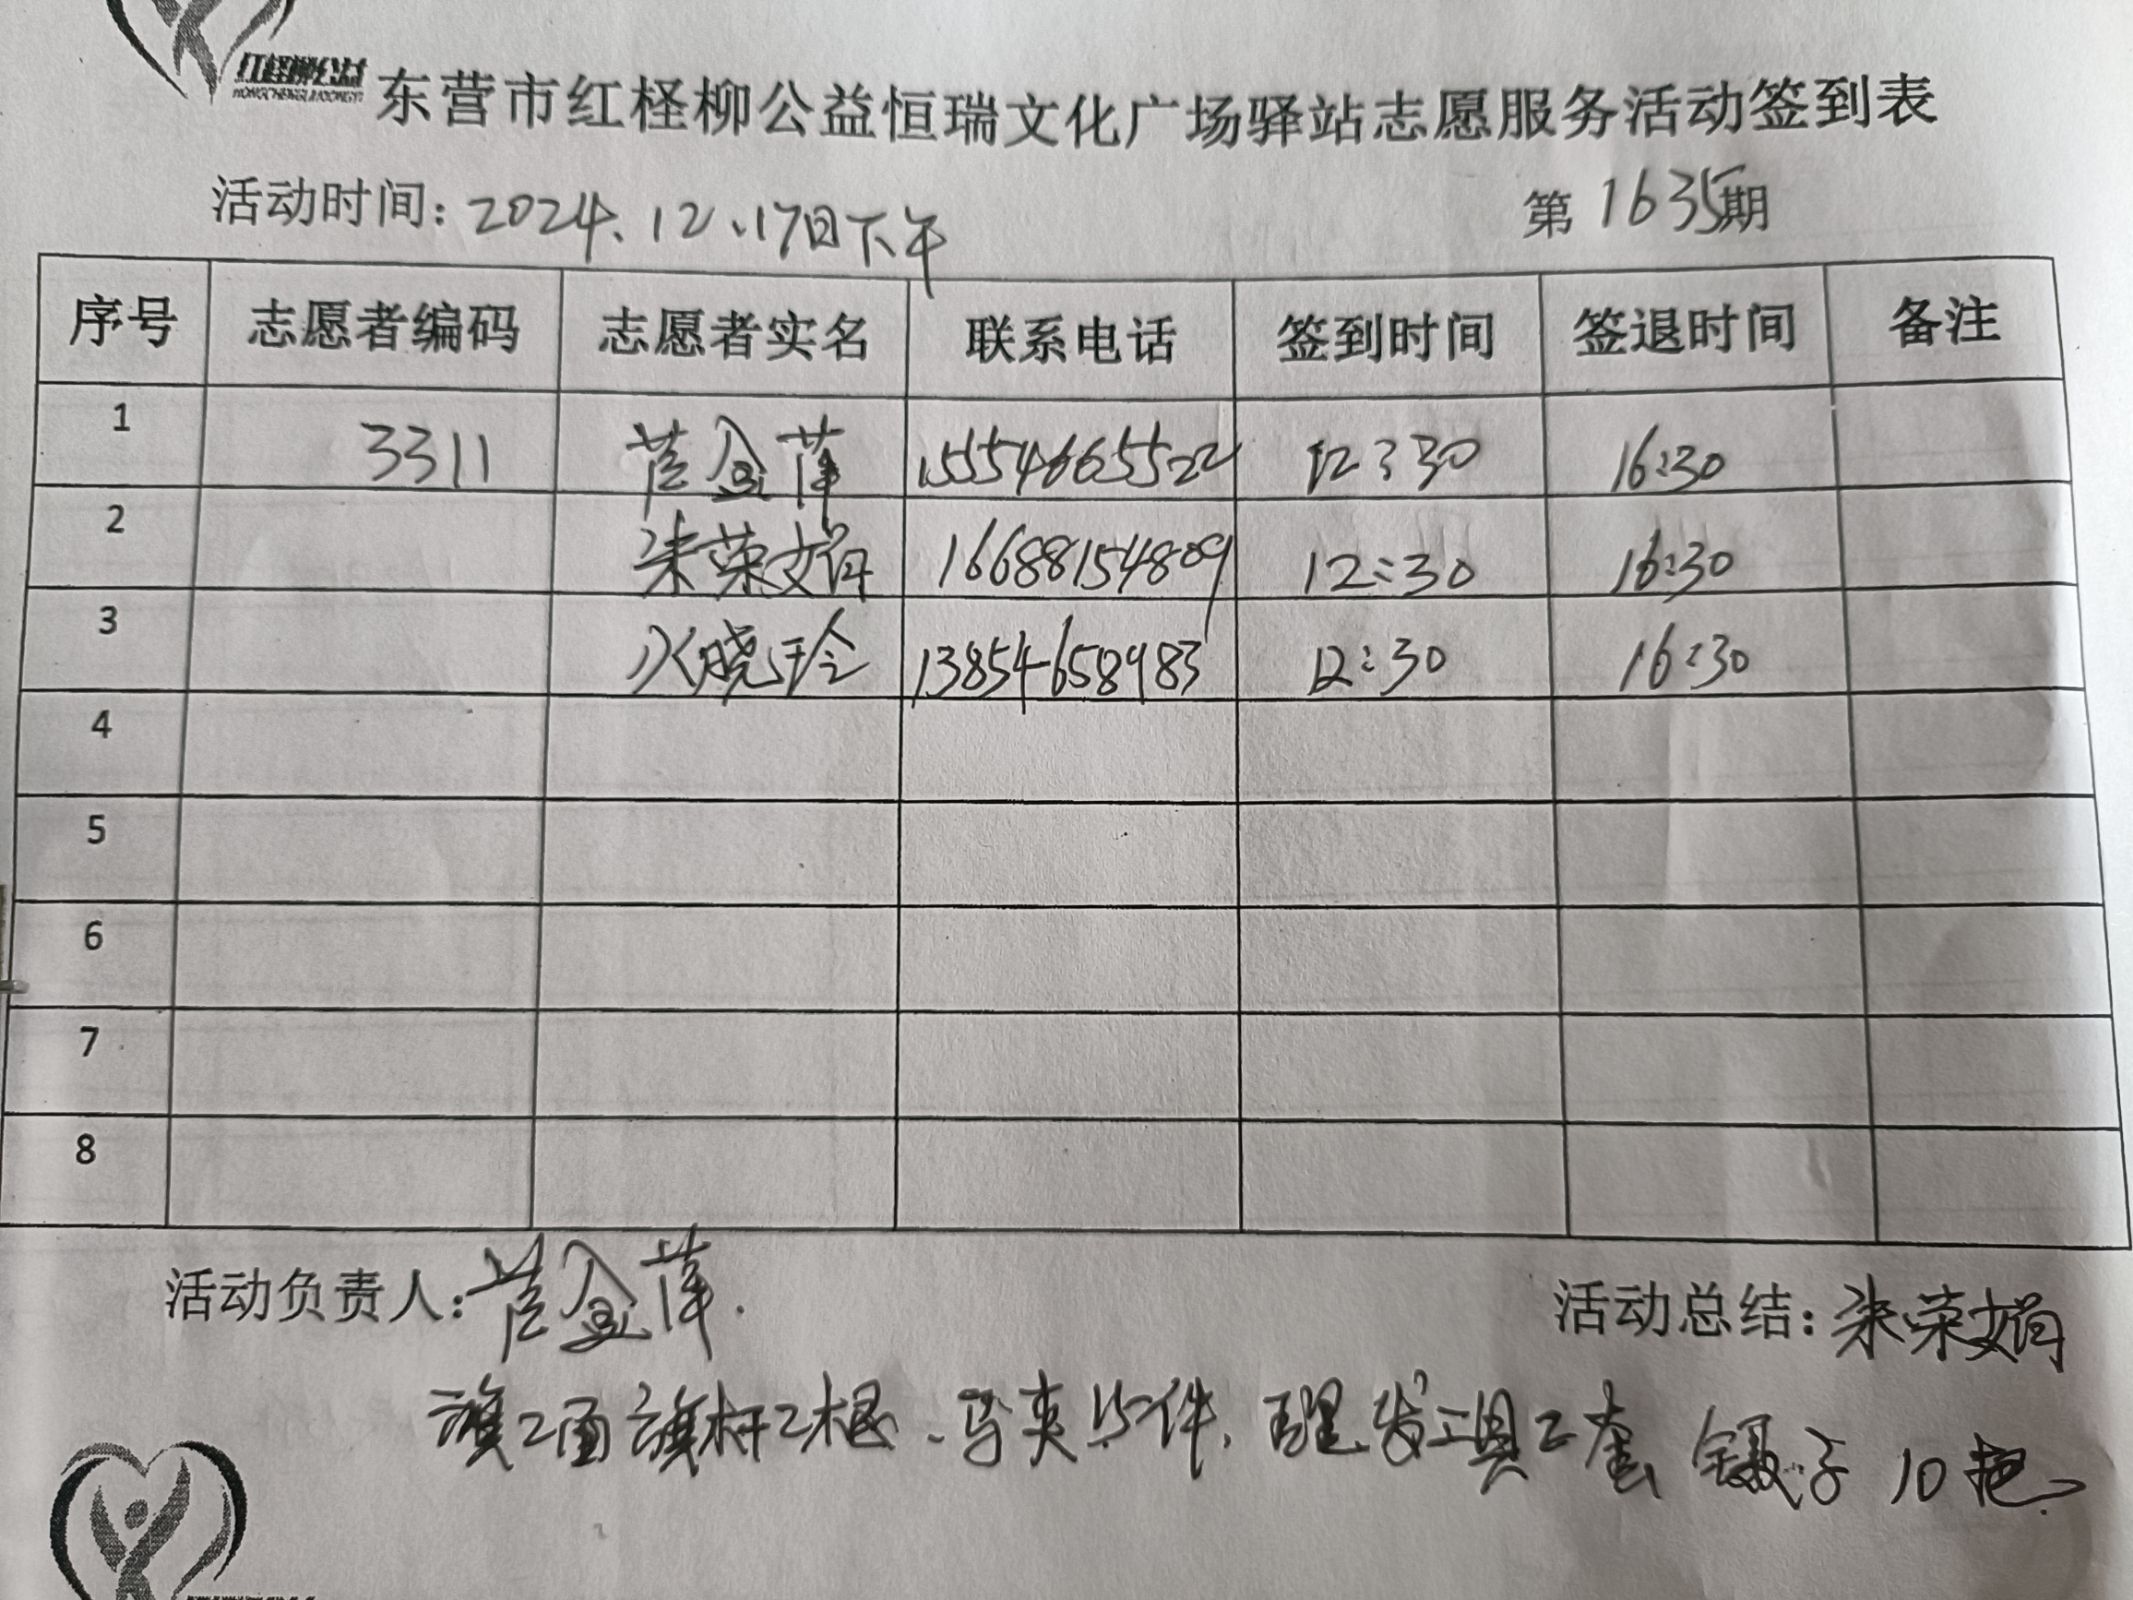 红柽柳公益
HONGCHENGLIUGONGYI
东营市红柽柳公益恒瑞文化广场驿站志愿服务活动签到表
活动时间：2024.12.17日下午 第1635期
序号 志愿者编码 志愿者实名 联系电话 签到时间 签退时间 备注
1 3311 金萍 15554665522 12:30 16:30
2 朱荣娟 16688154809 12:30 16:30
3 晓玲 13854658983 12:30 16:30
4
5
6
7
8
活动负责人：金萍. 活动总结：朱荣娟
旗2面旗杆2根、马夹15件，理发工具2套 镊子10把。